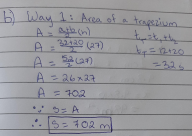 b) Way 1: Area of a trapezium
A = a+b/2 (h)
A = 32+20/2 (27)
A = 52/2 (27)
A = 26×27
A = 702
∴ S = A
∴ S = 702 m
t_T = t₁ + t₂
t_T = 12+20
= 32 s